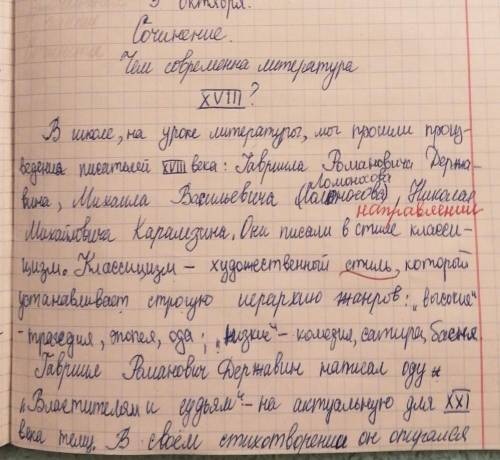 5 октября.
Сочинение.
Чем современна литература
XVIII?
В школе, на уроке литературы, мы прошли произ-
ведения писателей XVIII века: Гавриила Романовича Держа-
Ломоносова
вина, Михаила Васильевича (Ломоносова), Николая
направлении
Михайловича Карамзина. Они писали в стиле класси-
цизм. Классицизм – художественный стиль, который
устанавливает строгую иерархию жанров: „высокие"
- трагедия, эпопея, ода; „низкие" – комедия, сатира, басня.
Гавриил Романович Державин написал оду
„Властителям и судьям" – на актуальную для XXI
века тему. В своём стихотворении он опирался